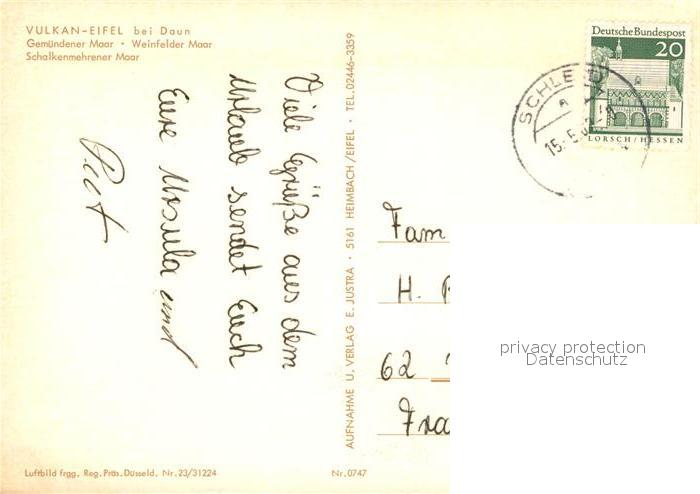 VULKAN-EIFEL bei Daun
Gemündener Maar · Weinfelder Maar
Schalkenmehrener Maar
Viele Grüße aus dem
Urlaub sendet Euch
Eure Ursula und
AUFNAHME U. VERLAG E. JUSTRA · 5161 HEIMBACH/EIFEL · TEL. 02446-3359
Deutsche Bundespost
20
LORSCH/HESSEN
SCHLE
15.5.
Fam
H.
62
Fra
privacy protection
Datenschutz
Luftbild frgg. Reg. Präs. Düsseld. Nr. 23/31224
Nr. 0747